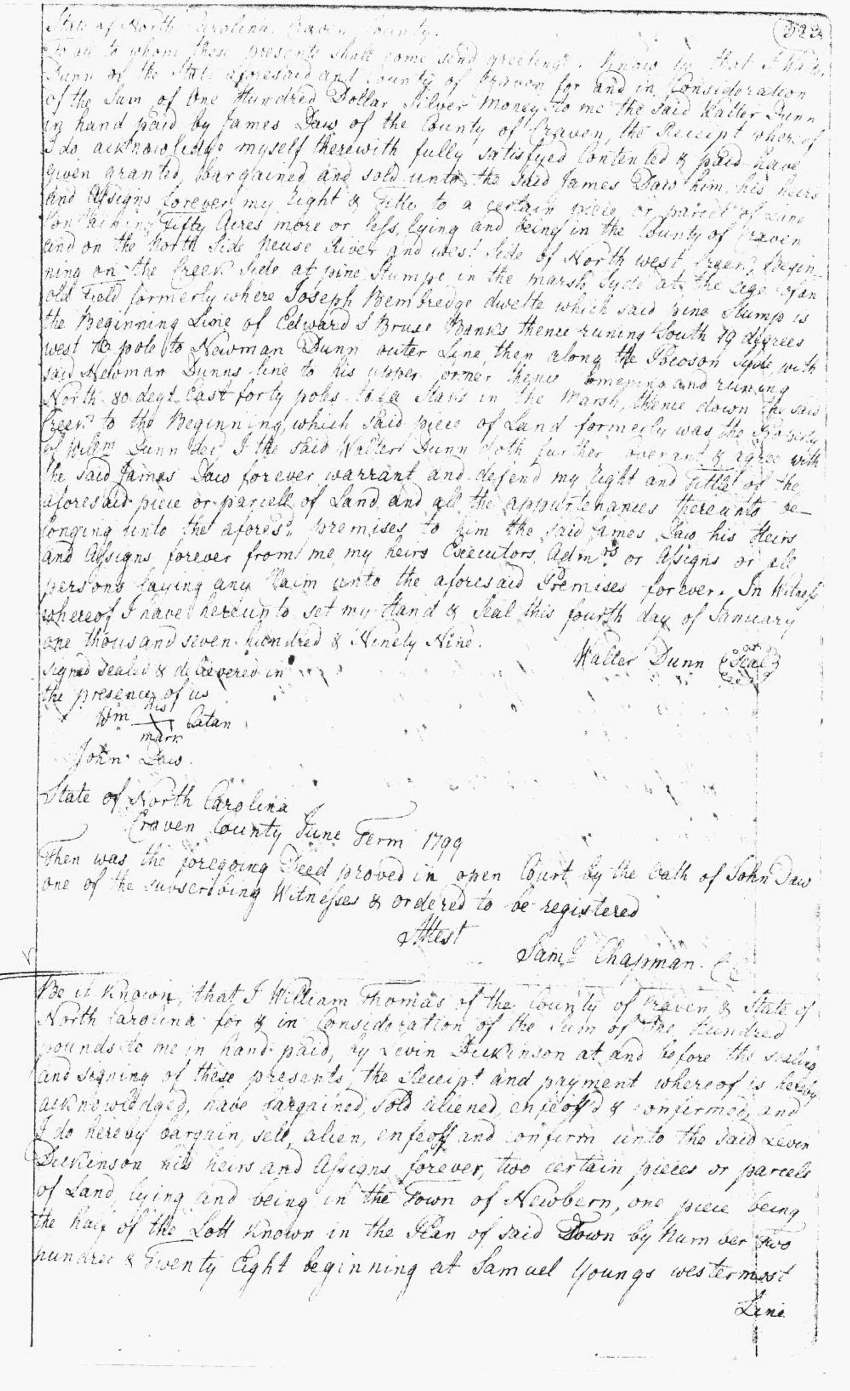 322
State of North Carolina Craven County.
To all to whom these presents shall come send greeting. Know ye that I Walter
Dunn of the State aforesaid and County of Craven for and in Consideration
of the Sum of One Hundred Dollar Silver Money to me the said Walter Dunn
in hand paid by James Daw of the County of Craven, the Receipt whereof
I do acknowledge myself therewith fully satisfyed Contented & paid have
given granted, bargained and sold unto the said James Daw him, his heirs
and Assigns forever my Right & Title to a certain piece or parcel of Land
Containing Fifty Acres more or less, lying and being in the County of Craven
and on the North Side Neuse River and west Side of North west Creek, Begin-
ning on the Creek Side at pine Stumpe in the marsh Syde at the edge of an
old Field formerly where Joseph Bembredge dwelte which said pine Stump is
the Beginning Line of Edward S Bruse Banks thence runing South 19 degrees
west pole to Newman Dunn outer Line then along the Pocoson Syde with
said Newman Dunns line to his upper corner thence and runing
North 80 degs. East forty poles to a Stake in the Marsh, thence down the said
Creek to the Beginning, which said piece of Land formerly was the Property
of Willm Dunn Decd I the said Walter Dunn doth further Covenant & agree with
the said James Daw forever warrant and defend my Right and Title of the
aforesaid piece or parcell of Land and all the appurtenances thereunto be-
longing unto the aforesd. premises to him the said James Daw his Heirs
and Assigns forever from me my heirs Executors, Admrs or Assigns or all
persons laying any Claim unto the aforesaid Premises forever. In Witness
whereof I have hereunto set my Hand & Seal this fourth day of January
one thousand seven hundred & Ninety Nine.
Walter Dunn Seal
signed Sealed & delivered in
the presence of us
Wm his Catan
mark
John Daw.
State of North Carolina
Craven County June Term 1799
Then was the foregoing Deed proved in open Court by the Oath of John Daw
one of the subscribing Witnesses & ordered to be registered
Attest
Saml Chapman. CC
Be it Known, that I William Thomas of the County of Craven & State of
North Carolina for & in Consideration of the Sum of One Hundred
pounds to me in hand paid, by Levin Dickinson at and before the sealing
and signing of these presents, the Receipt and payment whereof is hereby
acknowledged, have bargained, Sold aliened, enfeoff'd & confirmed, and
I do hereby bargain, sell, alien, enfeoff and confirm unto the said Levin
Dickinson his heirs and Assigns forever, two certain pieces or parcels
of Land, lying and being in the Town of Newbern, one piece being
the half of the Lott Known in the Plan of said Town by Number two
hundred & Twenty Eight beginning at Samuel Youngs westermost
Line